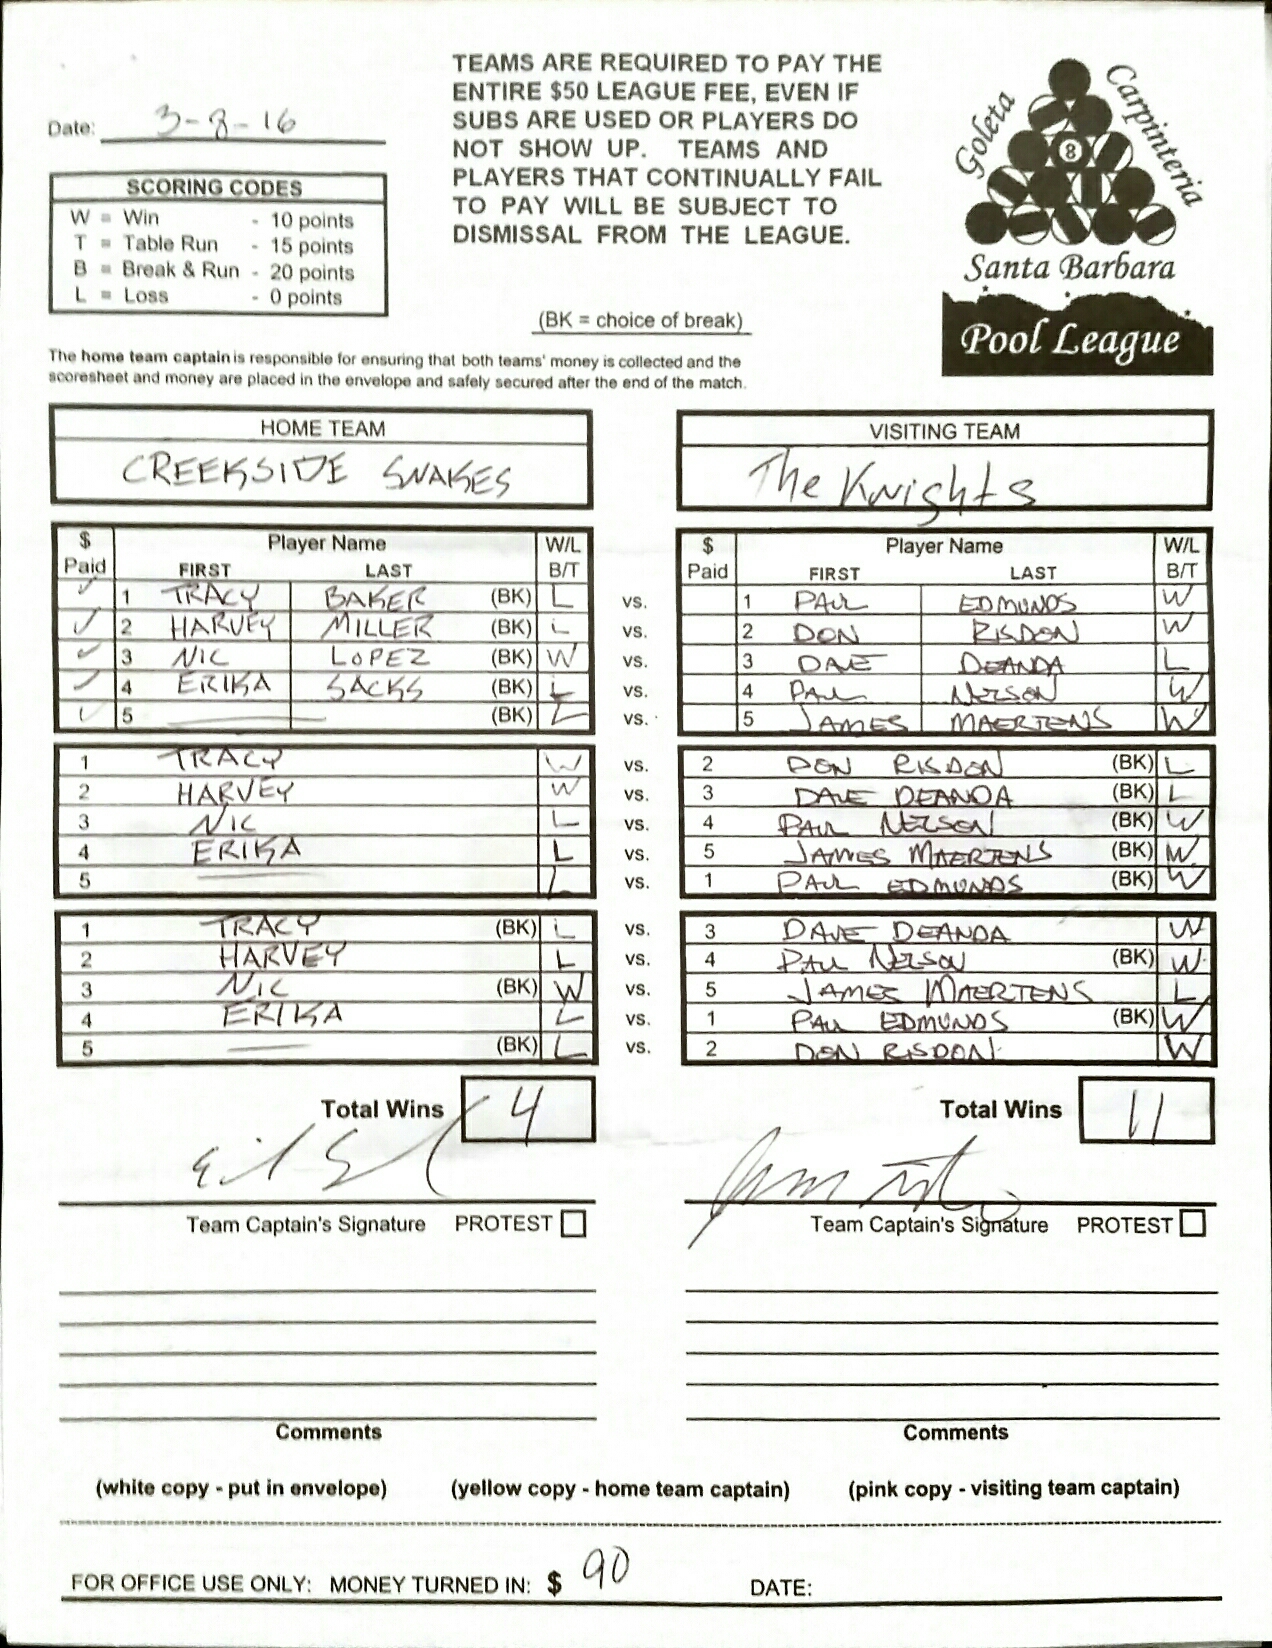 TEAMS ARE REQUIRED TO PAY THE
ENTIRE $50 LEAGUE FEE, EVEN IF
SUBS ARE USED OR PLAYERS DO
NOT SHOW UP. TEAMS AND
PLAYERS THAT CONTINUALLY FAIL
TO PAY WILL BE SUBJECT TO
DISMISSAL FROM THE LEAGUE.
Goleta
Carpinteria
8
Santa Barbara
Pool League
Date: 3-8-16
SCORING CODES
W = Win - 10 points
T = Table Run - 15 points
B = Break & Run - 20 points
L = Loss - 0 points
(BK = choice of break)
The home team captain is responsible for ensuring that both teams' money is collected and the
scoresheet and money are placed in the envelope and safely secured after the end of the match.
HOME TEAM VISITING TEAM
CREEKSIDE SNAKES The Knights
$ Player Name W/L $ Player Name W/L
Paid FIRST LAST B/T Paid FIRST LAST B/T
✓ 1 TRACY BAKER (BK) L vs. 1 PAUL EDMUNDS W
✓ 2 HARVEY MILLER (BK) L vs. 2 DON RISDON W
✓ 3 NIC LOPEZ (BK) W vs. 3 DAVE DEANDA L
✓ 4 ERIKA SACKS (BK) L vs. 4 PAUL NELSON W
✓ 5 (BK) L vs. 5 JAMES MAERTENS W
1 TRACY W vs. 2 DON RISDON (BK) L
2 HARVEY W vs. 3 DAVE DEANDA (BK) L
3 NIC L vs. 4 PAUL NELSON (BK) W
4 ERIKA L vs. 5 JAMES MAERTENS (BK) W
5 L vs. 1 PAUL EDMUNDS (BK) W
1 TRACY (BK) L vs. 3 DAVE DEANDA W
2 HARVEY L vs. 4 PAUL NELSON (BK) W
3 NIC (BK) W vs. 5 JAMES MAERTENS L
4 ERIKA L vs. 1 PAUL EDMUNDS (BK) W
5 (BK) L vs. 2 DON RISDON W
Total Wins 4 Total Wins 11
Team Captain's Signature PROTEST Team Captain's Signature PROTEST
Comments Comments
(white copy - put in envelope) (yellow copy - home team captain) (pink copy - visiting team captain)
FOR OFFICE USE ONLY: MONEY TURNED IN: $ 90 DATE: